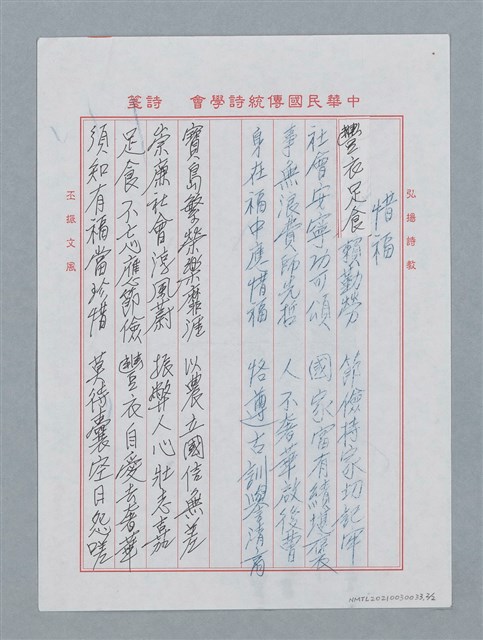 中華民國傳統詩學會　詩箋
弘揚詩教
惜福
豐衣足食賴勤勞　節儉持家切記牢
社會安寧功可頌　國家富有績進褒
事無浪費師先哲　人不奢華啟後曹
身在福中應惜福　恪遵古訓學清高
寶島繁榮樂靡涯　以農立國信無差
崇廉社會淳風蔚　振弊人心壯志嘉
足食不忘應節儉　豐衣自愛去奢華
須知有福當珍惜　莫待囊空日怨嗟
丕振文風
NMTL20210030033,2/2